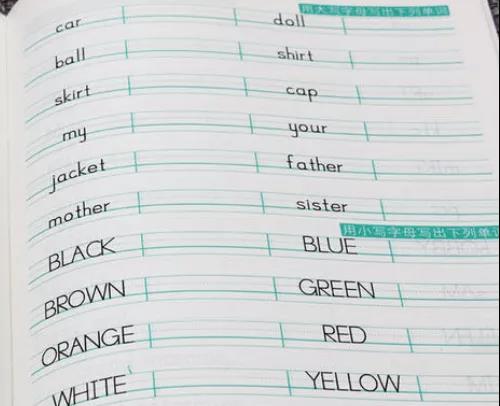 用大写字母写出下列单词
car doll
ball shirt
skirt cap
my your
jacket father
mother sister
用小写字母写出下列单词
BLACK BLUE
BROWN GREEN
ORANGE RED
WHITE YELLOW